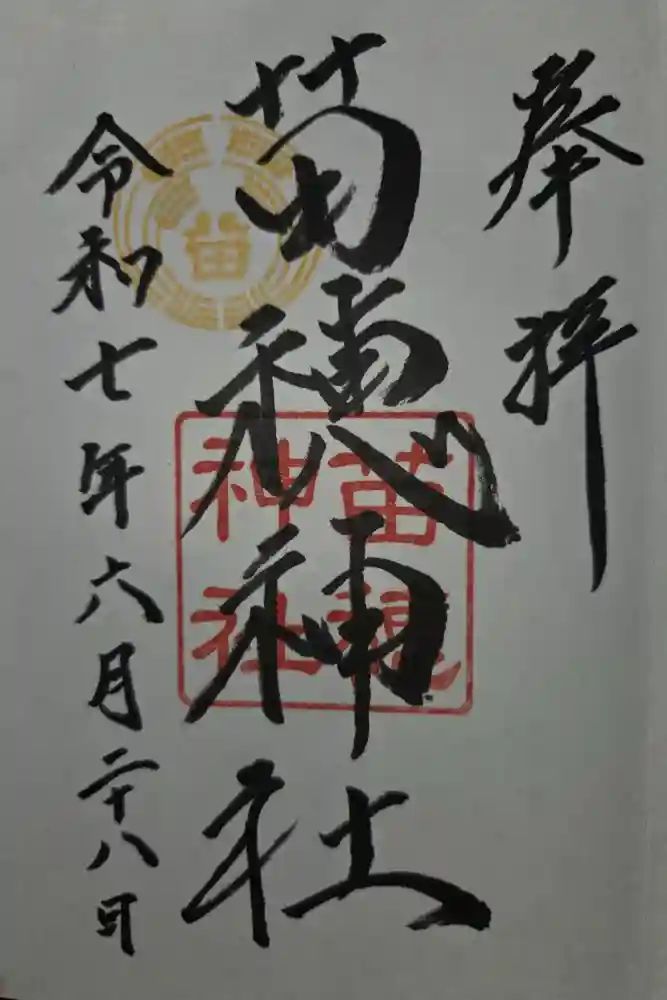 奉拝
苗穂神社
苗穂
神社
苗
令和七年六月二十八日